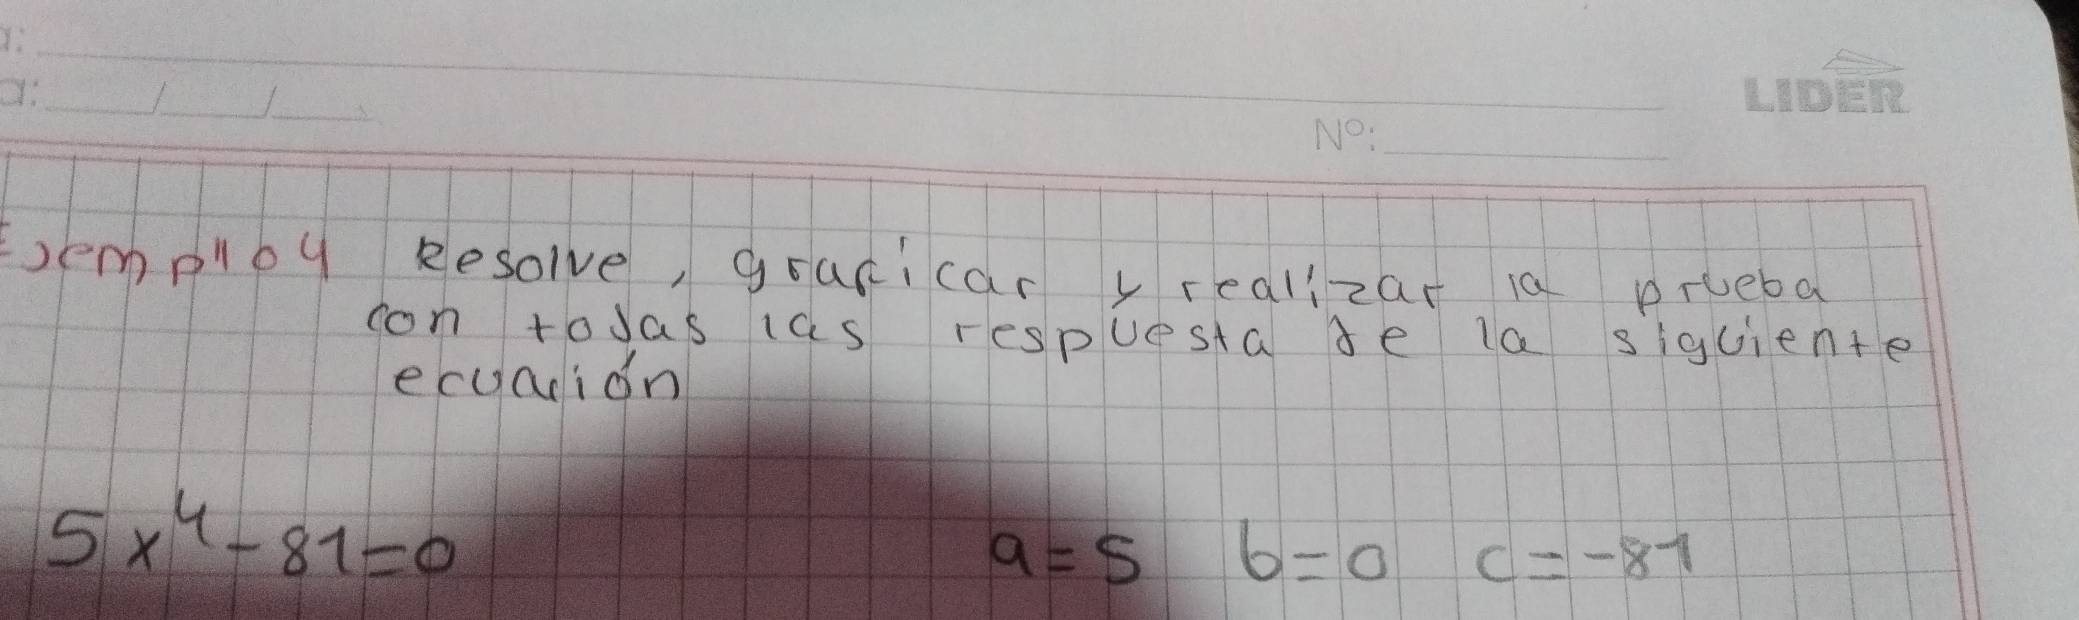 a:
a: / /
LIDER
Nº:
Ejemplo 4 Resolve, graficar y realizar la prueba
con todas las respuesta de la siguiente
ecuación
5x⁴-81=0 a=5 b=0 c=-81